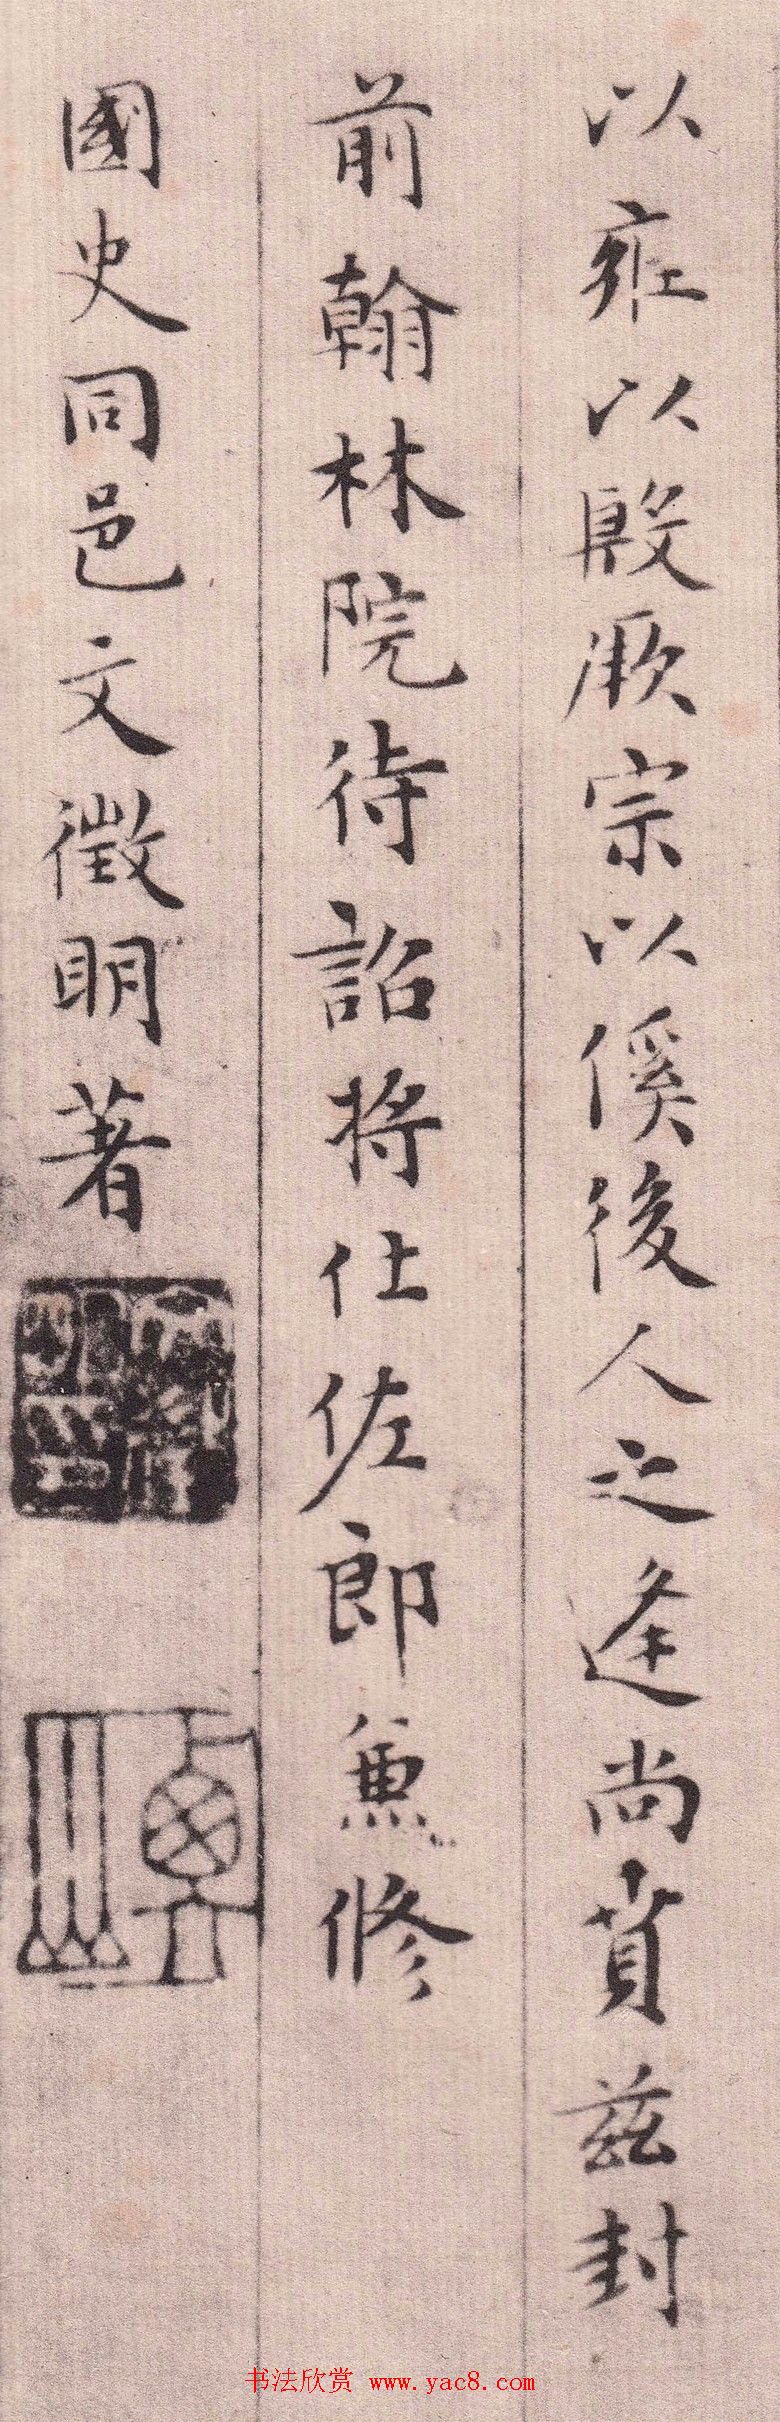 以雍以殷厥宗以傒後人之逢尚賁茲封
前翰林院待詔將仕佐郎兼修
國史同邑文徵明著
书法欣赏 www.yac8.com